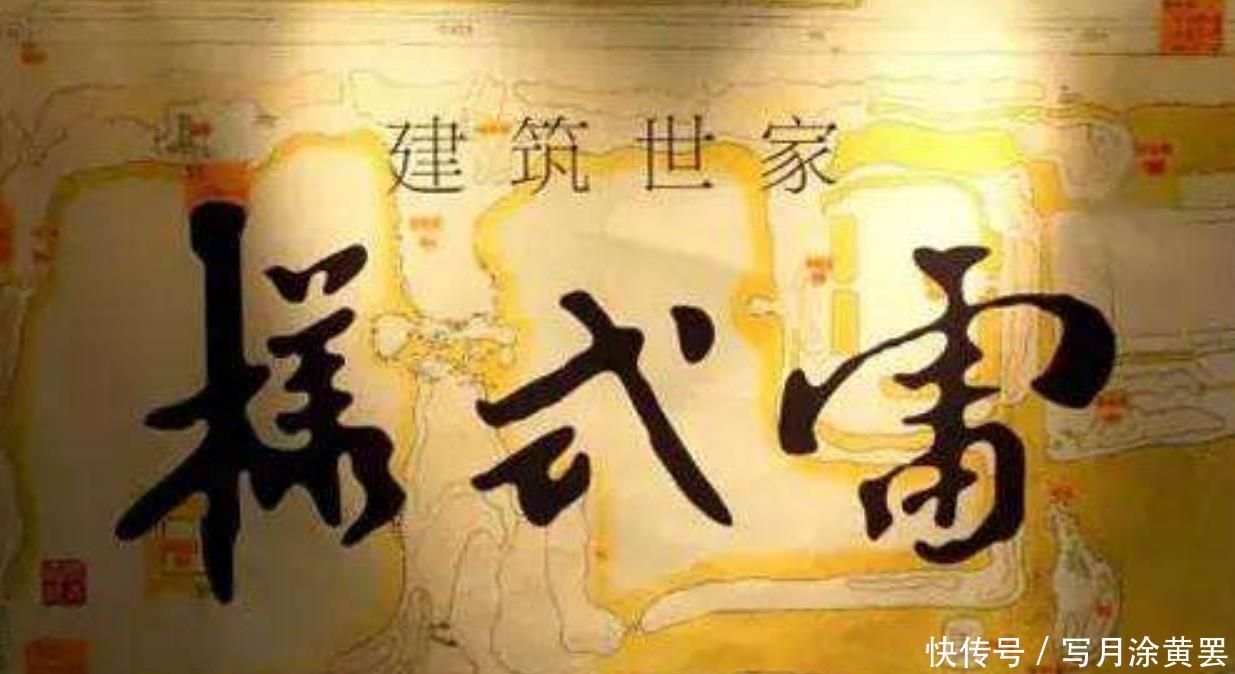 建筑世家
様式雷
快传号 / 写月涂黄罢